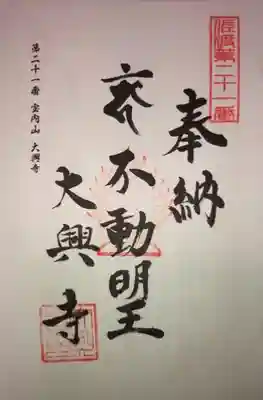 佐渡第二十一番
奉納
不動明王
大興寺
第二十一番 宝内山 大興寺